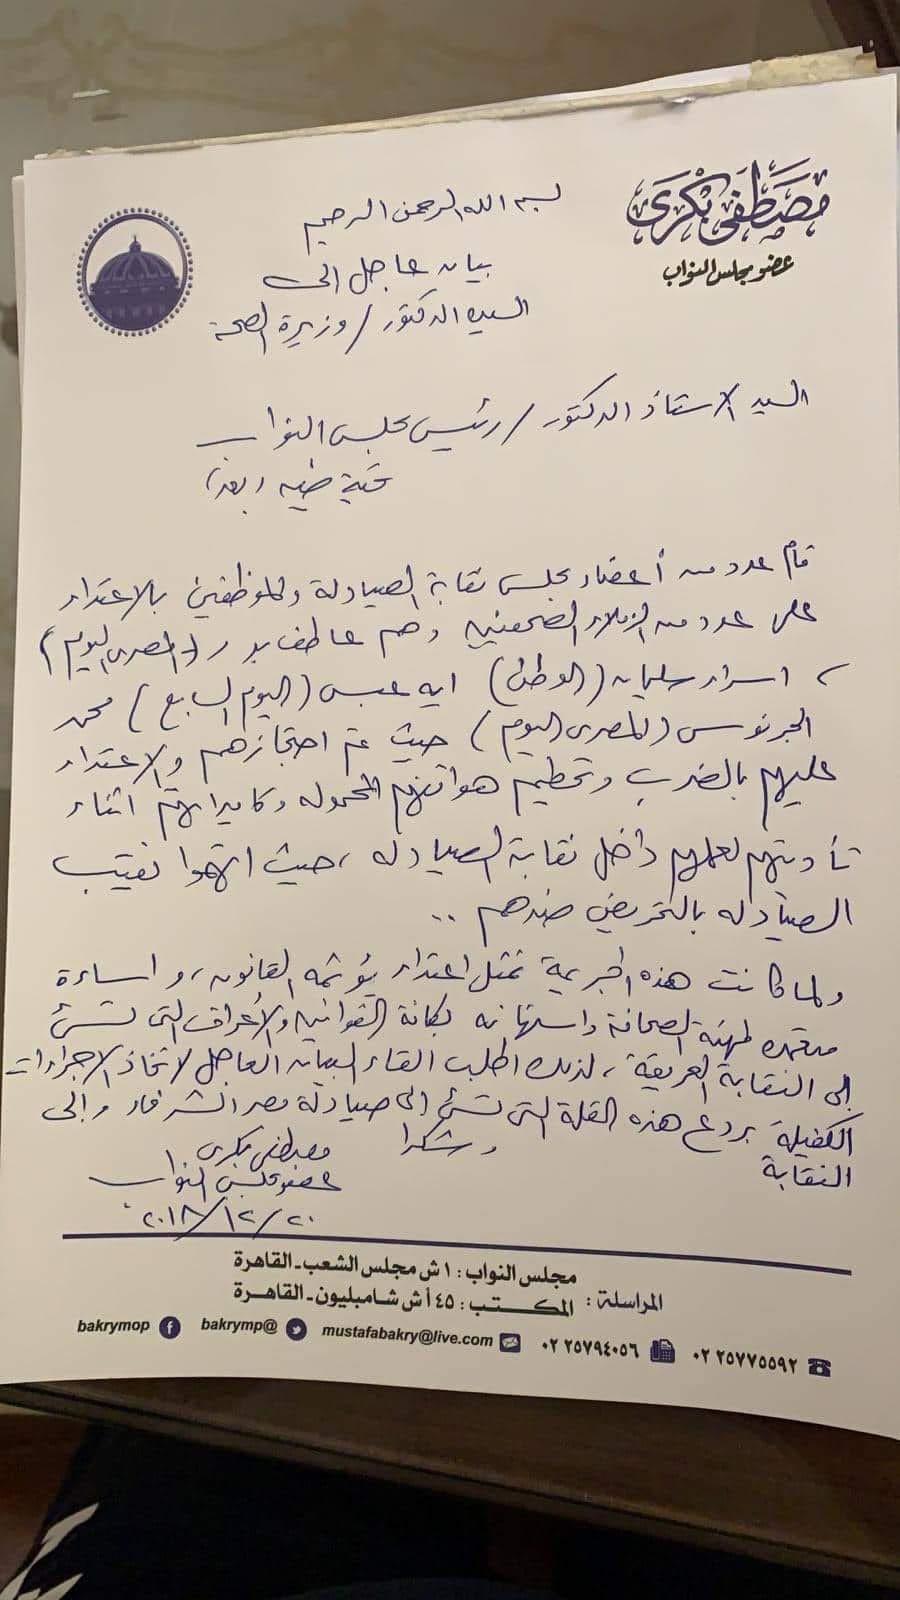 مصطفى بكرى
عضو مجلس النواب
بسم الله الرحمن الرحيم
بيان عاجل إلى
السيده الدكتور / وزيرة الصحة
السيد الاستاذ الدكتور / رئيس مجلس النواب
تحية طيبه وبعد،
قام عدد من أعضاء مجلس نقابة الصيادلة والموظفين بالاعتداء
على عدد من الزملاء الصحفيين وهم عاطف بدر (المصرى اليوم)
، اسراء سليمان (الوطن) ايه (اليوم السابع) محمد
الجرنوسى (المصرى اليوم) حيث تم احتجازهم والاعتداء
عليهم بالضرب وتحطيم هواتفهم المحموله وكاميراتهم اثناء
تأديتهم لعملهم داخل نقابة الصيادله ، حيث اتهموا نقيب
الصيادله بالتحريض ضدهم ..
ولما كانت هذه الجريمة تمثل اعتداء يؤثمه القانون ، واساءة
متعمده لمهنة الصحافة واستهانه بكافة القوانين والأعراف التى تسئ
إلى النقابة العريقة ، لذلك اطلب القاء البيان العاجل لاتخاذ الاجراءات
الكفيلة بردع هذه القلة التى تسئ إلى صيادلة مصر الشرفاء وإلى
النقابة
وشكرا
مصطفى بكرى
عضو مجلس النواب
٢٠١٨/١٢/٢٠
المراسلة : مجلس النواب : ١ ش مجلس الشعب - القاهرة
المكتب : ٤٥ أ ش شامبليون - القاهرة
٠٢ ٢٥٧٧٥٥٩٢ ٠٢ ٢٥٧٩٤٠٥٦ mustafabakry@live.com bakrymp@ bakrymop